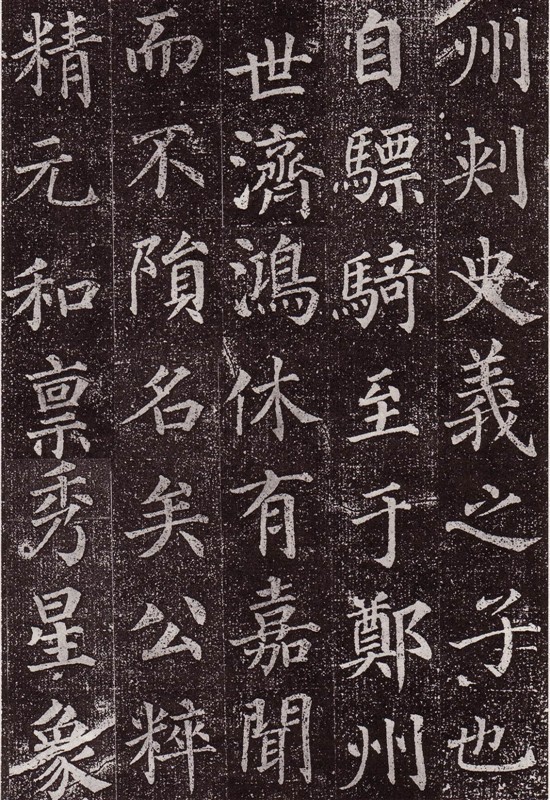 州刾史義之子也
自驃騎至于鄭州
世濟鴻休有嘉聞
而不隕名矣公粹
精元和禀秀星象